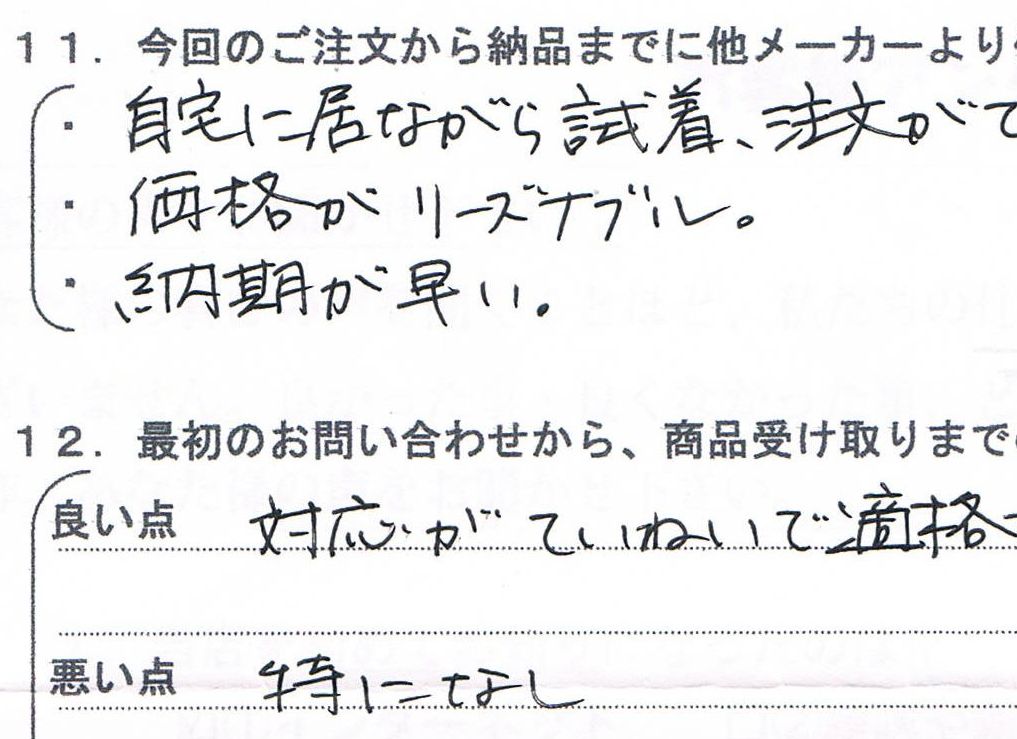 11. 今回のご注文から納品までに他メーカーより
・自宅に居ながら試着、注文がで
・価格がリーズナブル。
・納期が早い。
12. 最初のお問い合わせから、商品受け取りまで
良い点 対応がていねいで適格
悪い点 特になし